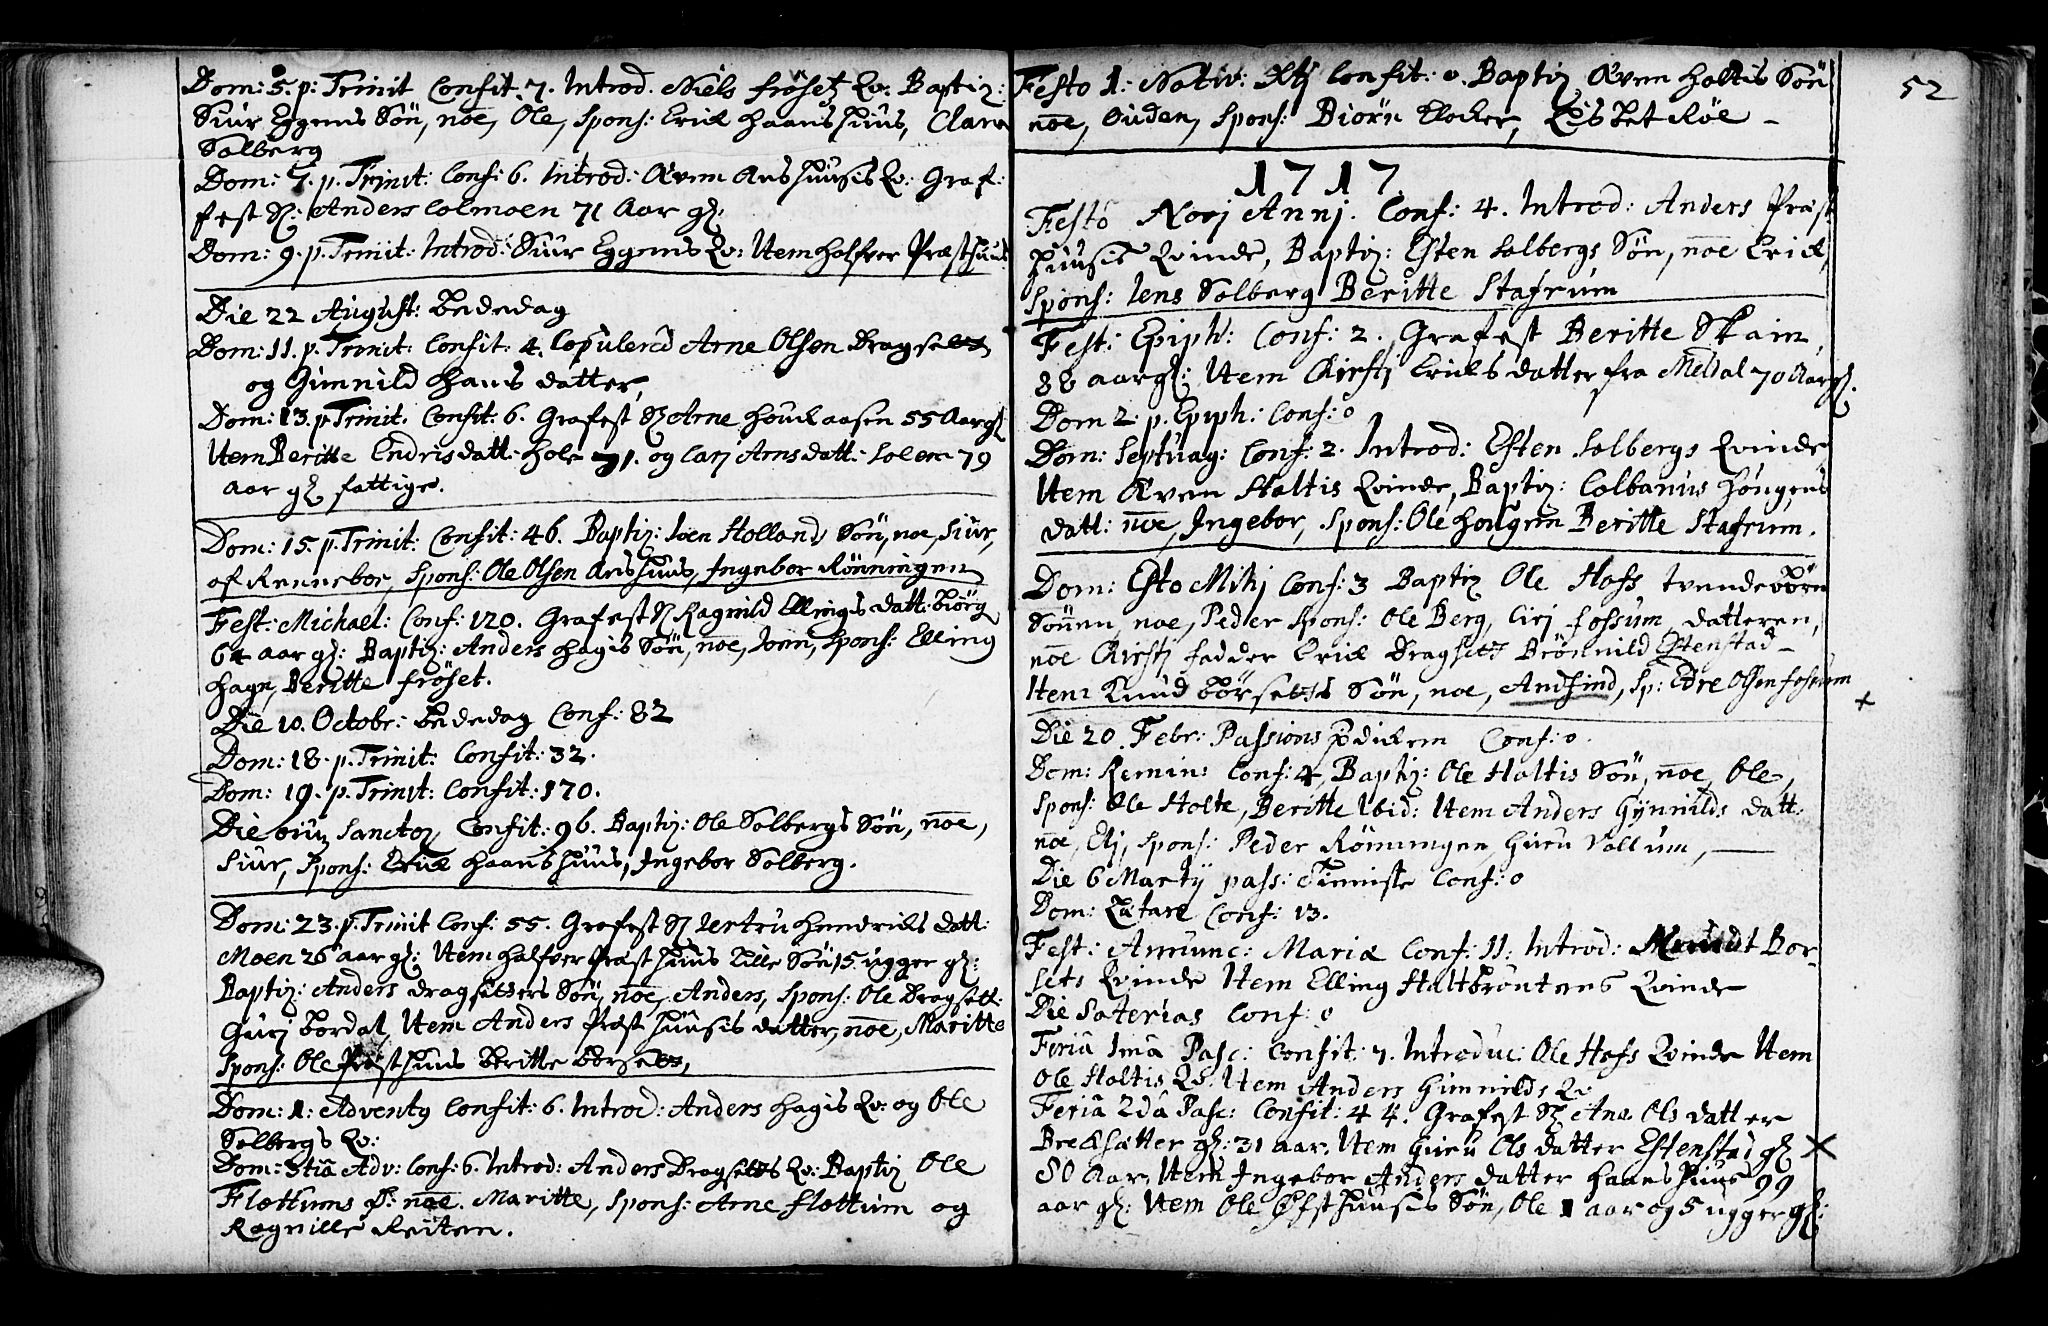 Dom: 5. p: Trinit Confit. 7. Introd. Niels frøsetz Qv: Baptiz:
Siur Eggens Sön, noe, Ole, Spons: Erick haans huus, Clara
Solberg
Dom: 7. p. Trinit: Conf: 6. Introd: Æven Aas huusis Qv: Graf:
fest S: Anders Colmoen 71 Aar gl:
Dom: 9. p. Trinit: Introd: Siur Eggens Qv: Item halfver Præsthuus
Die 22 August: Bededag
Dom: 11. p. Trinit: Confit: 4. Copulered Arne Olsen Dragsett
og Gunnild Hans datter,
Dom: 13. p. Trinit. Confit: 6. Grafest S Arne houckaasen 55 Aar gl
Item Beritte Endrisdatt: hole 71. og Cari Arnsdatt: Solem 79
aar gl fattige.
Dom: 15. p. Trinit: Confit: 46. Baptiz: Joen Hollands Sön, noe, Siur,
af Renneboe, Spons: Ole Olsen Aashuus, Ingebor Rönningen
Fest: Michael: Conf: 120. Grafest S Ragnild Ellings datt: biörg
64 aar gl: Baptiz: Anders hagis Sön, noe, Joen, Spons: Elling
hage, Beritte fröset.
Die 10. Octobr: Bededag Conf: 82
Dom: 18. p. Trinit: Confit: 32.
Dom: 19. p. Trinit: Confit: 170.
Die oium Sanctor Confit: 96. Baptiz: Ole Solbergs Sön, noe,
Siur, Spons: Erick haans huus, Ingebor Solberg.
Dom: 23. p. Trinit Conf: 55. Grafest S Jertru hendricks datt:
Moen 26 aar gl: Item halfver Præst huus Lille Sön 15 ugger gl:
Baptiz: Anders dragsetters Sön, noe, Anders, Spons: Ole Dragsett:
Guri bordal, Item Anders Præst huusis datter, noe, Maritte
Spons: Ole Præsthuus Beritte börsett,
Dom: 1: Adventg Confit: 6. Introd: Anders hagis Qv: og Ole
Solbergs Qv:
Dom: 3tia Adv: Conf: 6. Introd: Anders Dragsetts Qv: Baptiz Ole
Flottums d: noe. Maritte, Spons: Arne flottum og
Ragnille Reitem.
Festo 1: Nativ: Xtj Confit: 0. Baptiz Æven holtis Sön
noe, Ouden, Spons: Biörn Klocker, Lisbet Röe -
52
1717
Festo Novj Annj. Conf: 4. Introd: Anders Præst
huusis Qvinde, Baptiz: Esten Solbergs Sön, noe Erick,
Spons: Jens Solberg Beritte Stafrum
Fest: Epiph: Conf: 2. Grafest Beritte Skain,
88 aar gl: Item Kirstj Ericksdatter fra Meldal 70 Aar gl.
Dom 2. p. Epiph: Conf: 0
Dom: Septuag: Conf: 2. Introd: Esten Solbergs Qvinde
Item Æven Holtis Qvinde, Baptiz: Colbanus höngens
datt: noe, Ingebor, Spons: Ole hongen Beritte Stafrum.
Dom: Esto Mihj Conf: 3 Baptiz Ole Hofs tvende börn
Sönnen, noe, Peder Spons: Ole Berg, Cirj fossum, datteren,
noe Kirstj fadder Erick Dragsett Brönnild Estenstad -
Item Knud börsetts Sön, noe, Andfind, Sp: Edre Olsen fossum
+
Die 20. Febr: Passions pdicken Conf: 0.
Dom: Remin: Conf: 4, Baptiz: Ole Holtis Sön, noe, Ole,
Spons: Ole Holte, Beritte Ibid: Item Anders Gynnilds datt:
noe, Elj, Spons: Peder Rönningen, Guru Vollum,
Die 6 Martÿ pass: Conf: 0
Dom: Lætare Conf: 13.
Fest: Annunc: Mariæ Conf: 11. Introd: Bor-
sets Qvinde Item Elling Holtbröntens Qvinde
Die Conf: 0
Feria 1ma Pasc: Confit: 7. Introduc: Ole Hofs Qvinde Item
Ole Holtis Qv. Item Anders Gunnilds Qv
Feria 2da Pasc: Confit: 44. Grafest S Ane Ols datter
Brecksætter gl: 31 aar. Item Guru Ols datter Estenstad gl X
80 Aar, Item Ingebor Anders datter haans huus 99
aar gl: Item Ole Øfst huusis Sön, Ole 1 aar og 5 ugger gl: